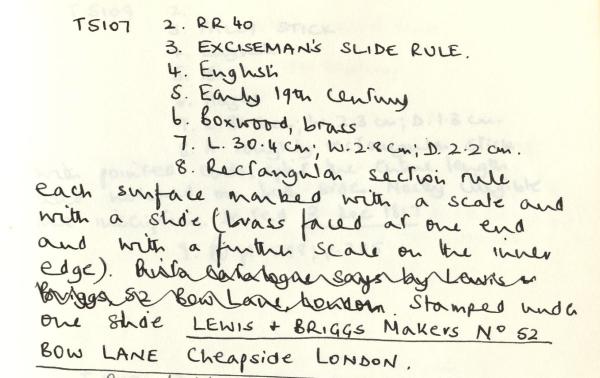 TS107 2. RR 40
3. EXCISEMAN'S SLIDE RULE.
4. English
5. Early 19th century
6. Boxwood, brass
7. L. 30.4 cm; W. 2.8 cm; D. 2.2 cm.
8. Rectangular section rule
each surface marked with a scale and
with a slide (brass faced at one end
and with a further scale on the inner
edge). catalogue says by Lewis &
Briggs 52 Bow Lane, London. Stamped under
one slide LEWIS & BRIGGS Makers No 52
BOW LANE Cheapside LONDON.